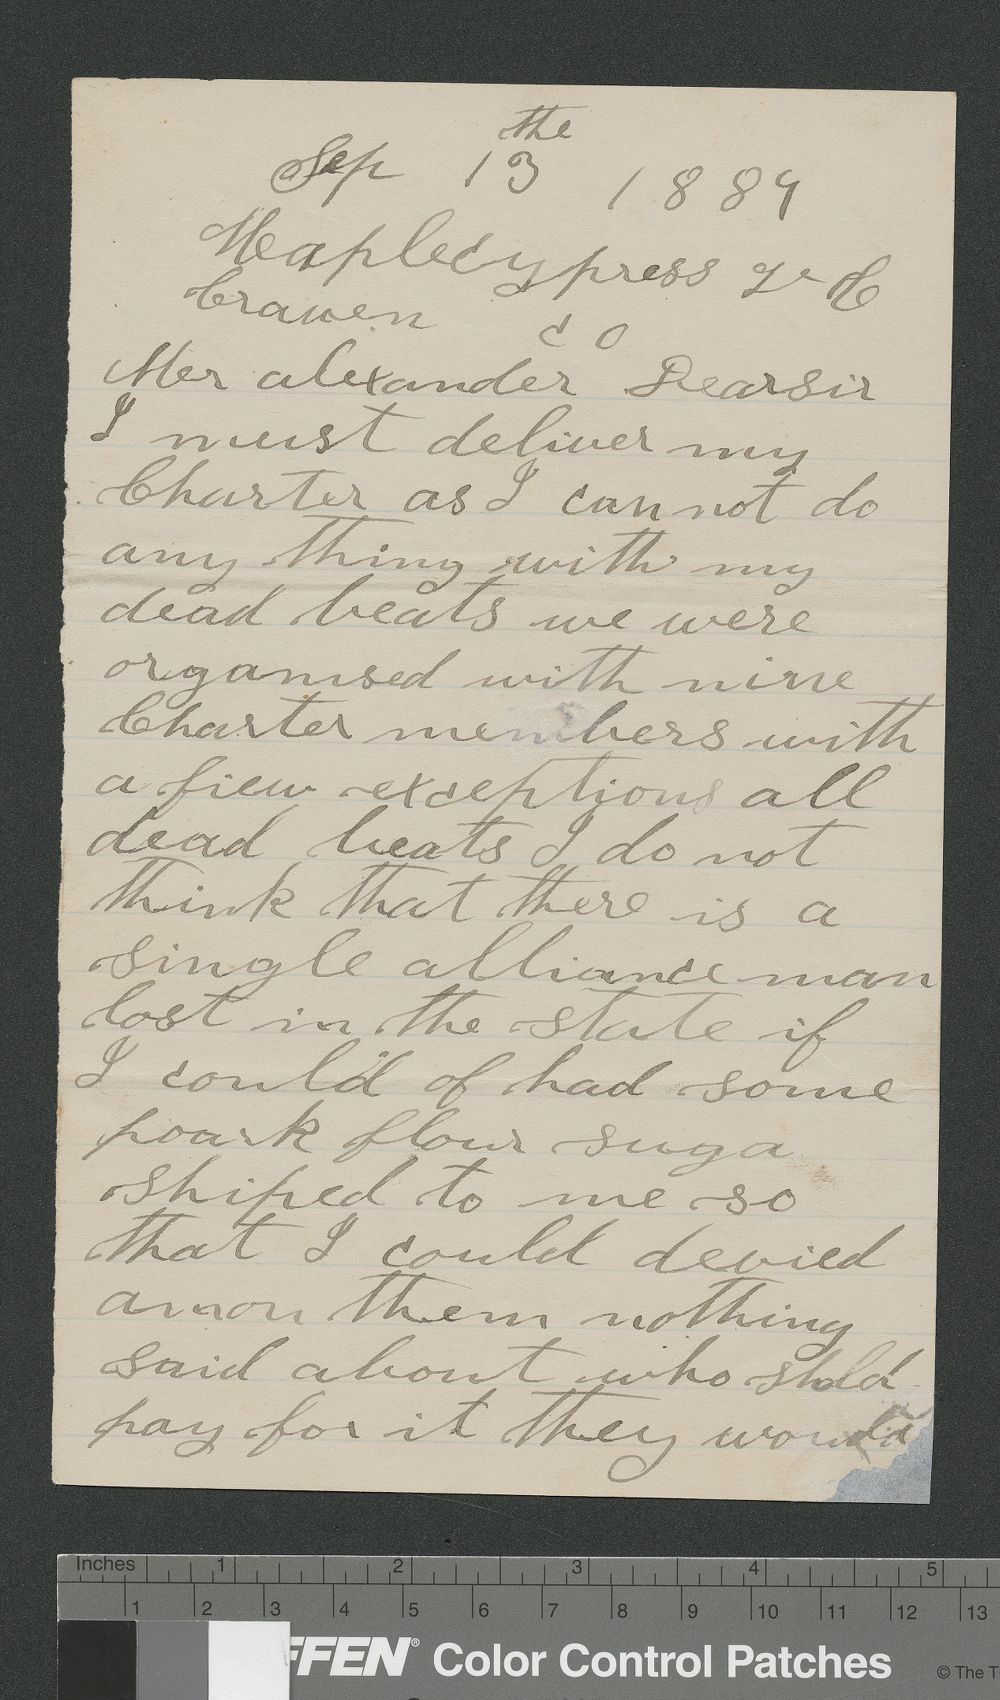 Sep 13 the 1889
Maplecypress N C
Craven co
Mer alexander Dearsir
I must deliver my
Charter as I can not do
any thing with my
dead beats we were
organised with nine
Charter members with
a fiew exceptions all
dead beats I do not
think that there is a
single alliance man
lost in the state if
I could of had some
poark flour suga
shiped to me so
that I could devied
amon them nothing
said about who shld
pay for it they would
Inches 1 2 3 4 5
1 2 3 4 5 6 7 8 9 10 11 12 13
FFEN® Color Control Patches © The T